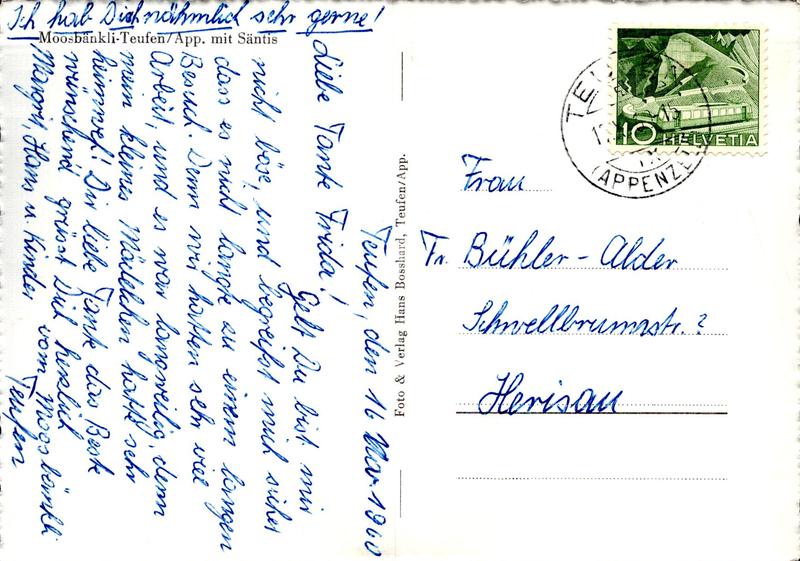 Ich hab Dich nähmlich sehr gerne!
Moosbänkli-Teufen/App. mit Säntis
Teufen, den 16 Nov. 1960
Liebe Tante Frida! Gelt Du bist mir
nicht böse, und begreifst mich sicher
dass es nicht langte zu einem langen
Besuch. Denn wir hatten sehr viel
Arbeit, und es war langweilig, denn
mein kleines Mädelchen hatte sehr
heimweh! Dir liebe Tante das Beste
wünschend grüsst Dich herzlich
Margrit, Hans u. Kinder vom Moosbänkli
Teufen
Foto & Verlag Hans Bosshard, Teufen/App.
10 HELVETIA
(APPENZELL)
Frau
Fr. Bühler-Alder
Schwellbrunnstr.?
Herisau